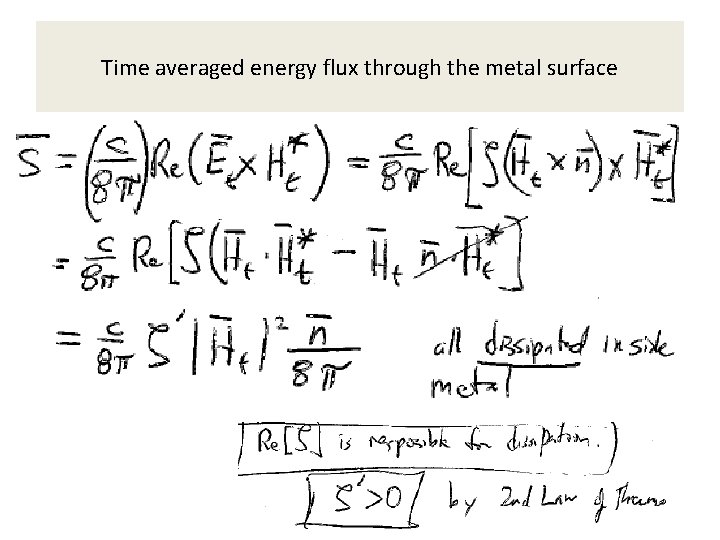 Time averaged energy flux through the metal surface
S̄ = (c/8π) Re(Ē_t × H̄_t*) = c/8π Re[ζ(H̄_t × n̄) × H̄_t*]
= c/8π Re[ζ(H̄_t · H̄_t* − H̄_t n̄ · H̄_t*]
= c/8π ζ′ |H̄_t|² n̄/8π all dissipated inside
metal
Re[ζ] is resposible for dissipation.
ζ′ > 0 by 2nd Law of Thermo